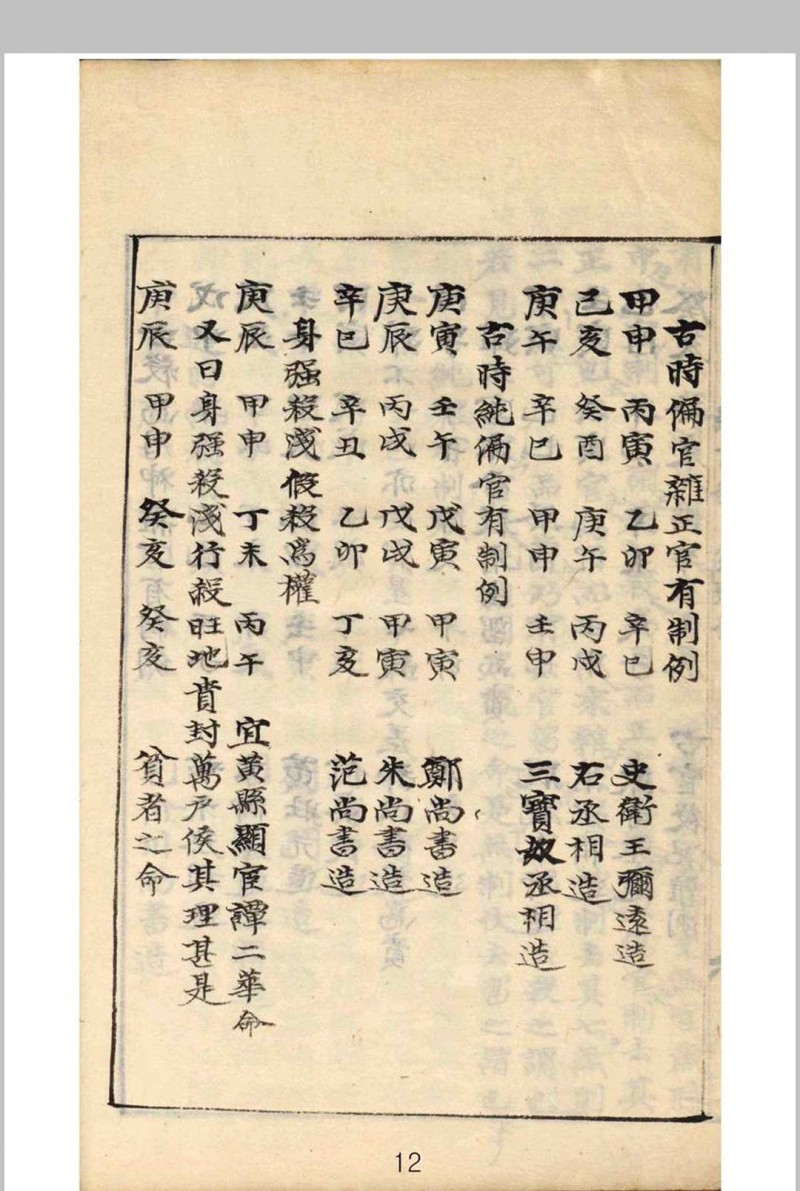 古時偏官雜正官有制例
甲申 丙寅 乙卯 辛巳 史衛王彌遠造
己亥 癸酉 庚午 丙戌 右丞相造
庚午 辛巳 甲申 壬申 三寶奴丞相造
古時純偏官有制例
庚寅 壬午 戊寅 甲寅 鄭尚書造
庚辰 丙戌 戊戌 甲寅 朱尚書造
辛巳 辛丑 乙卯 丁亥 范尚書造
身强殺淺假殺為權
庚辰 甲申 丁未 丙午 宜黃縣顯宦譚二華命
又曰身强殺淺行殺旺地貴封萬户侯其理甚是
庚辰 甲申 癸亥 癸亥 貧者之命
12